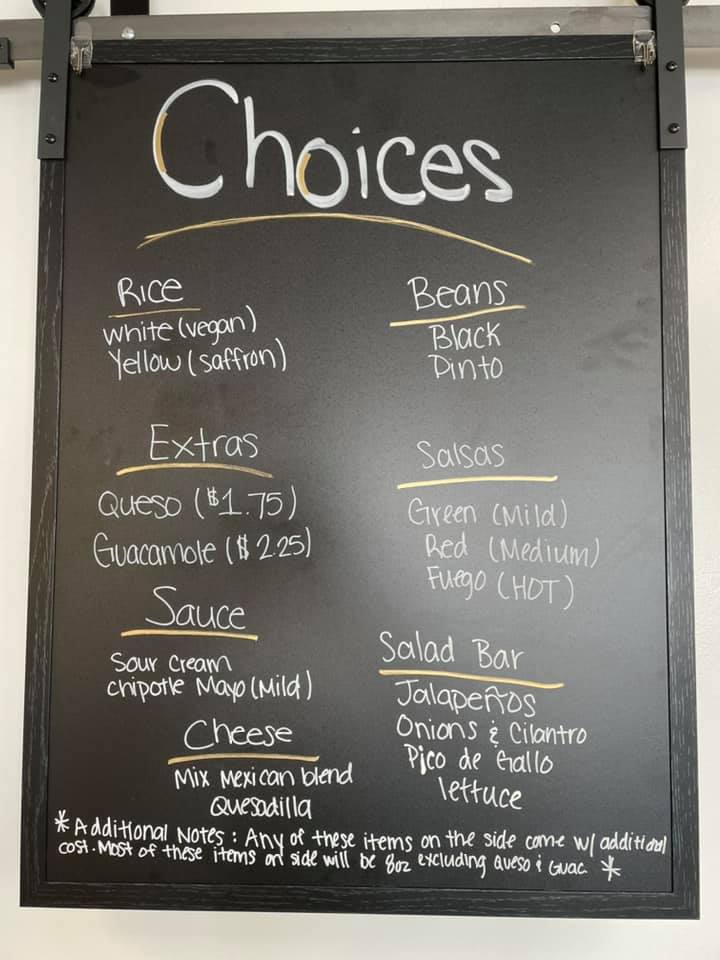 Choices
Rice
white (vegan)
Yellow (saffron)
Beans
Black
Pinto
Extras
Queso ($1.75)
Guacamole ($2.25)
Salsas
Green (Mild)
Red (Medium)
Fuego (HOT)
Sauce
Sour cream
chipotle Mayo (Mild)
Salad Bar
Jalapeños
Onions & Cilantro
Pico de Gallo
lettuce
Cheese
Mix Mexican blend
Quesadilla
* Additional Notes: Any of these items on the side come w/ additional
cost. Most of these items on side will be 8oz excluding queso & Guac. *